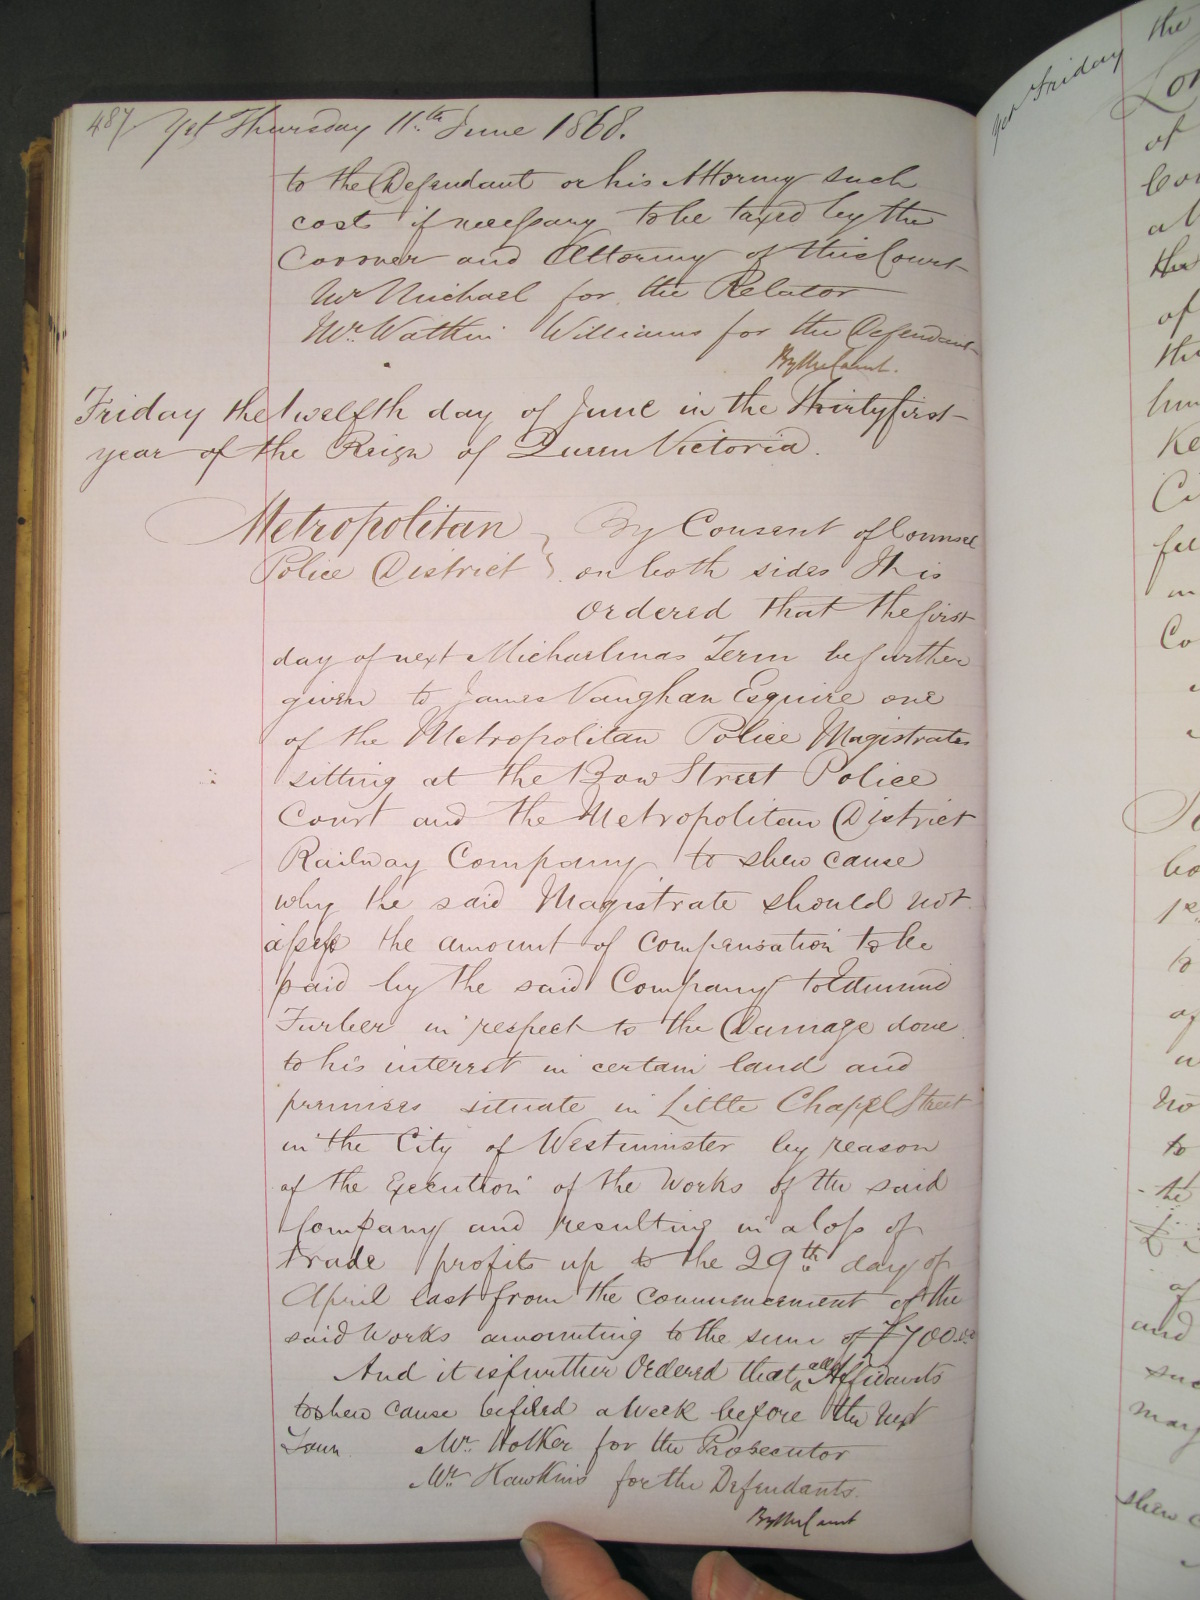 487 Yet Thursday 11th June 1868.
to the Defendant or his Attorney such
cost if necessary to be taxed by the
Coroner and Attorney of this Court
Mr Michael for the Relator
Mr. Watkin Williams for the Defendant
By the Court.
Friday the Twelfth day of June in the Thirtyfirst
year of the Reign of Queen Victoria.
Metropolitan } By Consent of Counsel
Police District } on both sides It is
Ordered that the first
day of next Michaelmas Term be further
given to James Vaughan Esquire one
of the Metropolitan Police Magistrates
sitting at the Bow Street Police
Court and the Metropolitan District
Railway Company to shew cause
why the said Magistrate should not
assess the amount of compensation to be
paid by the said Company to Edmund
Furber in respect to the Damage done
to his interest in certain land and
premises situate in Little Chapel Street
in the City of Westminster by reason
of the Execution of the Works of the said
Company and resulting in a loss of
trade profits up to the 29th day of
April last from the commencement of the
said Works amounting to the sum of £700
And it is further Ordered that all Affidavits
to shew cause be filed a Week before the next
Term Mr. Holker for the Prosecutor
Mr. Hawkins for the Defendants.
By the Court
Yet Friday
the
Lon
of
Con
the
of
Ci
in
Co
1st
to
no
to
the
of
and
suc
may
shew c